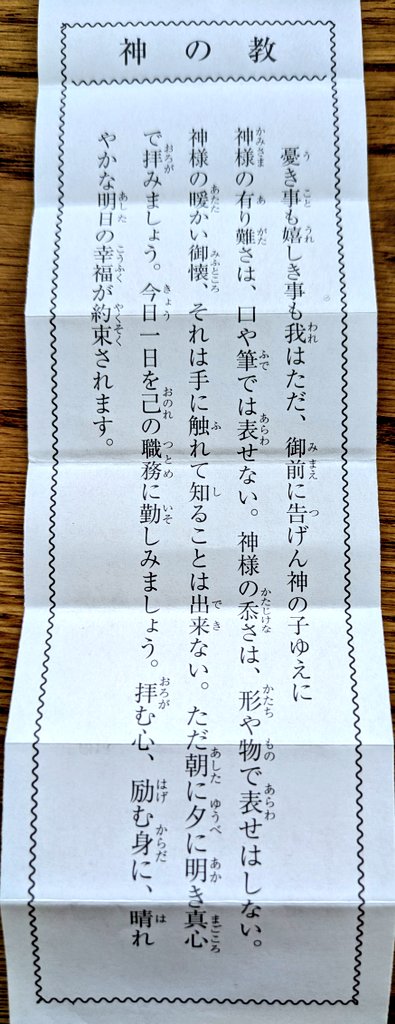 神の教
憂き事も嬉しき事も我はただ、御前に告げん神の子ゆえに
神様の有り難さは、口や筆では表せない。神様の忝さは、形や物で表せはしない。
神様の暖かい御懐、それは手に触れて知ることは出来ない。ただ朝に夕に明き真心
で拝みましょう。今日一日を己の職務に勤しみましょう。拝む心、励む身に、晴れ
やかな明日の幸福が約束されます。